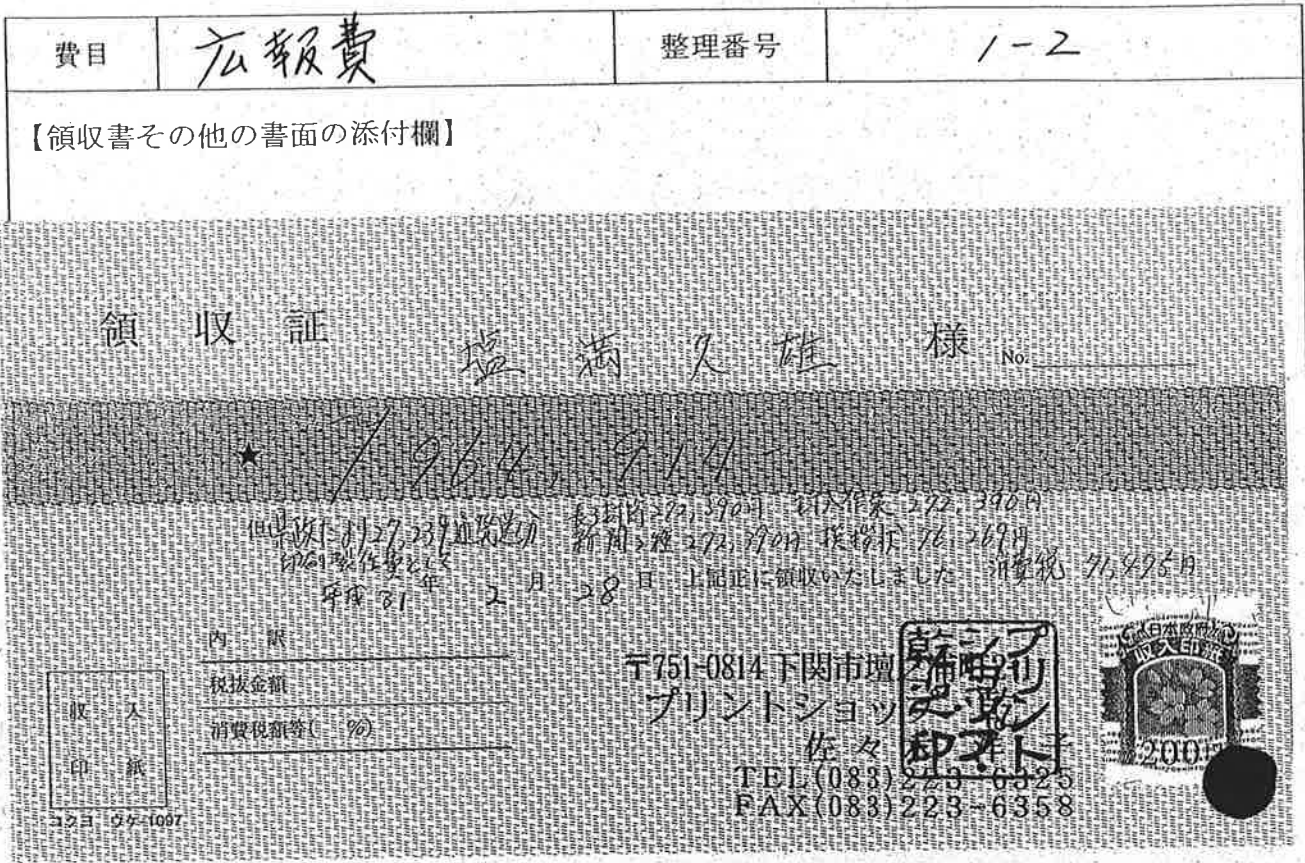 費目 広報費 整理番号 1-2
【領収書その他の書面の添付欄】
領収証 塩満久雄 様 No.
★ ¥964,914-
但 県政だより27,239通発送分 長3封筒 272,390円 封入作業 272,390円
印刷製作費として 新聞2種 272,390円 挨拶状 76,269円
平成31年2月28日 上記正に領収いたしました 消費税 71,475円
内訳
税抜金額
消費税額等( %)
収入
印紙
コクヨ ウケ-1097
〒751-0814 下関市壇
プリントショッ
佐々
TEL(083)223-6325
FAX(083)223-6358
日本政府
収入印紙
200円